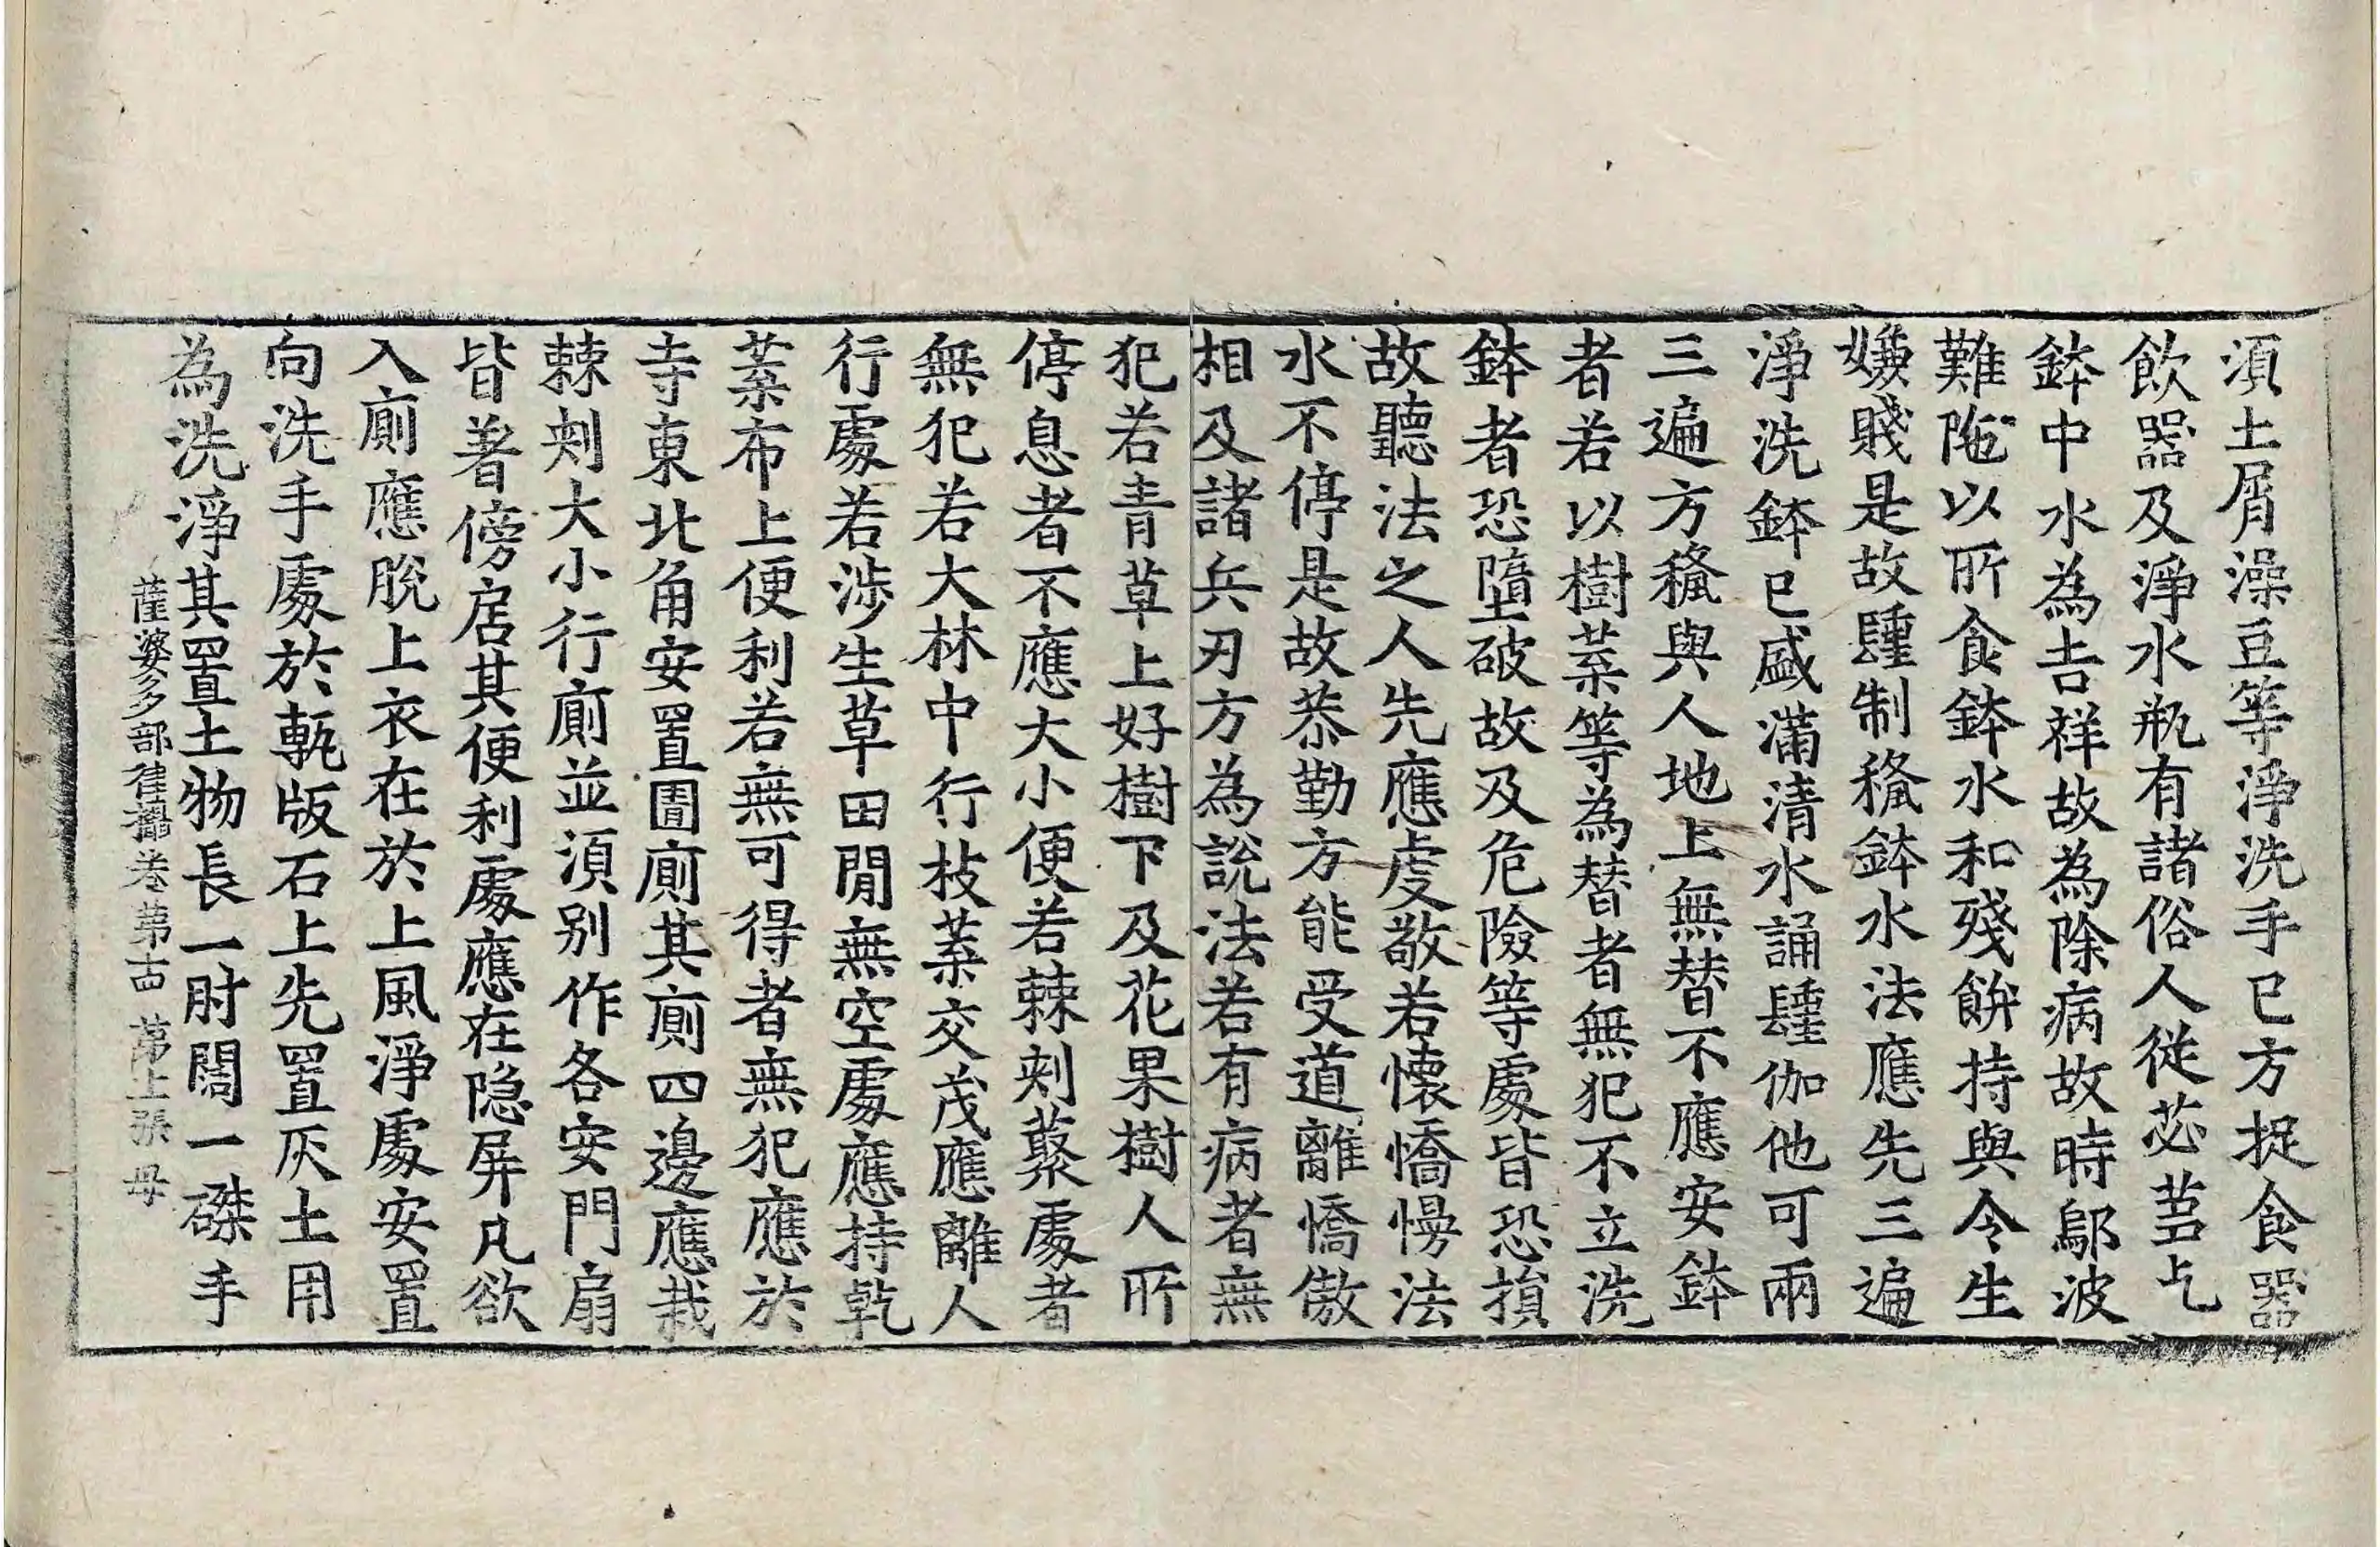 須土屑澡豆等淨洗手已方捉食器
飲器及淨水瓶有諸俗人從苾芻乞
鉢中水為吉祥故為除病故時鄔波
難陁以所食鉢水和殘餅持與令生
嫌賤是故𨽻制穢鉢水法應先三遍
淨洗鉢已盛滿清水誦𨽻伽他可兩
三遍方授與人地上無替不應安鉢
者若以樹葉等為替者無犯不立洗
鉢者恐墮破故及危險等處皆恐損
故聽法之人先應虔敬若懷憍慢法
水不停是故恭勤方能受道離憍傲
相及諸兵刃方為說法若有病者無
犯若青草上好樹下及花果樹人所
停息者不應大小便若棘刺藂處者
無犯若大林中行枝葉交茂應離人
行處若涉生草田閒無空處應持乾
葉布上便利若無可得者無犯應於
寺東北角安置圊廁其廁四邊應栽
棘刺大小行廁並須別作各安門扇
皆著傍扂其便利處應在隱屏凡欲
入廁應脫上衣在於上風淨處安置
向洗手處於甎版石上先置灰土用
為洗淨其置土物長一肘闊一磔手
薩婆多部律攝卷第古 第上張 母